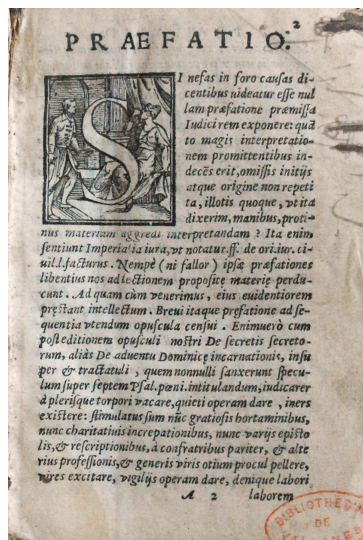 2
PRAEFATIO.
SI nefas in foro causas di-
centibus uideatur esse nul
lam præfatione præmissa
Iudici rem exponere: quā
to magis interpretatio-
nem promittentibus in-
decēs erit, omissis initijs
atque origine non repeti
ta, illotis quoque, vt ita
dixerim, manibus, proti-
nus materiam aggredi interpretandam? Ita enim
sentiunt Imperialia iura, vt notatur. ff. de ori. iur. ci-
uil. l. facturus. Nempè (ni fallor) ipsæ præfationes
libentius nos ad lectionem propositę materię perdu-
cunt. Ad quam cùm venerimus, eius euidentiorem
pręstant intellectum. Breui itaque prefatione ad se-
quentia vtendum opuscula censui. Enimuerò cum
post editionem opusculi nostri De secretis secreto-
rum, aliàs De aduentu Dominicę incarnationis, insu
per & tractatuli, quem nonnulli sanxerunt specu-
lum super septem Psal. pœni. intitulandum, iudicarer
à plerisque torpori vacare, quieti operam dare, iners
existere: stimulatus sum nūc gratiosis hortaminibus,
nunc charitatiuis increpationibus, nunc varijs episto
lis, & rescriptionibus, à confratribus pariter, & alte
rius professionis, & generis viris otium procul pellere,
vires excitare, vigilijs operam dare, denique labori
A 2 laborem
BIBLIOTHE
DE